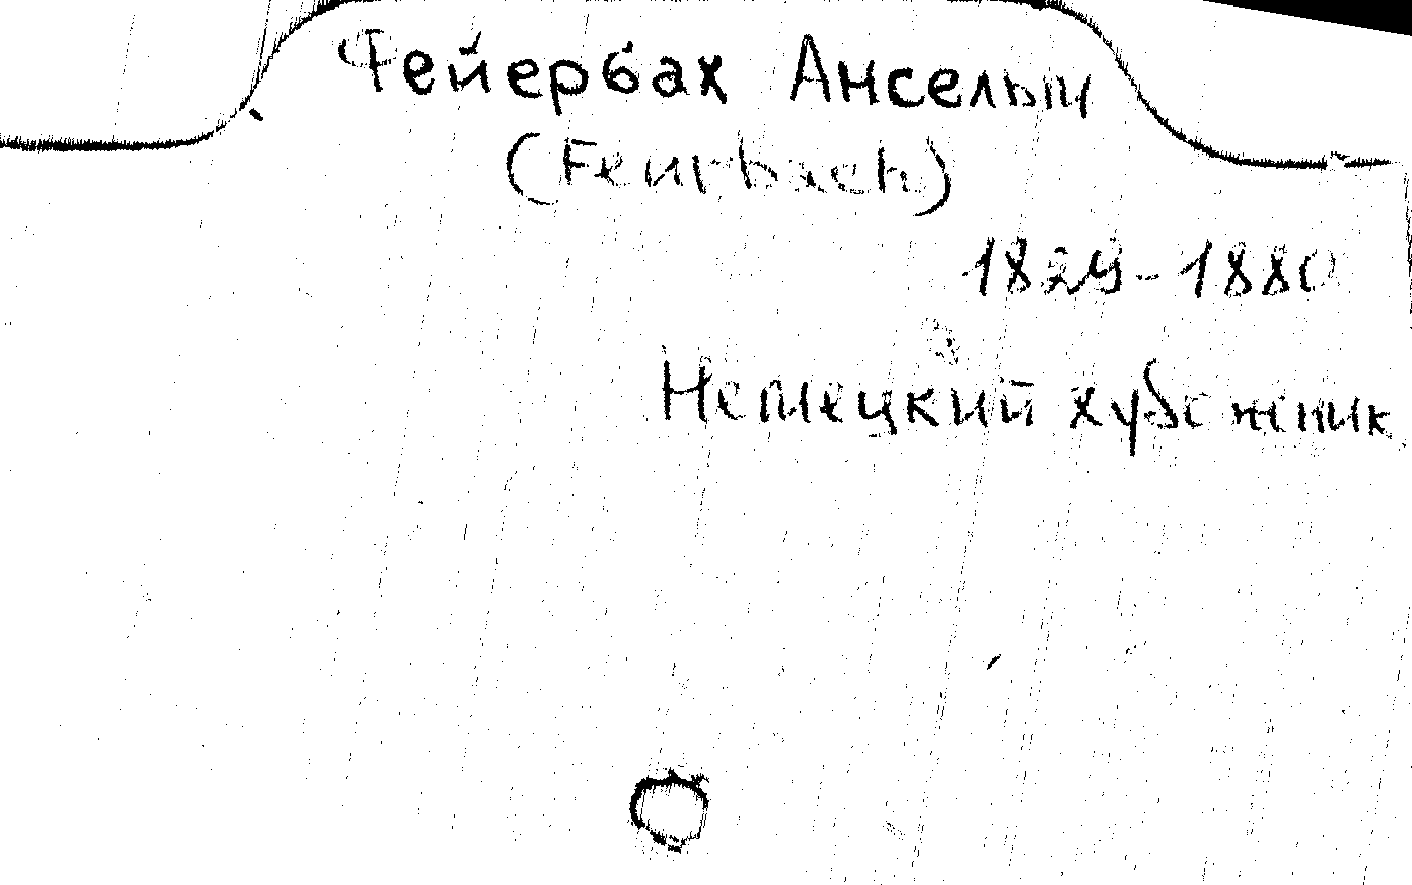 Фейербах Ансельм
(Feurbach)
1829-1880
Немецкий художник